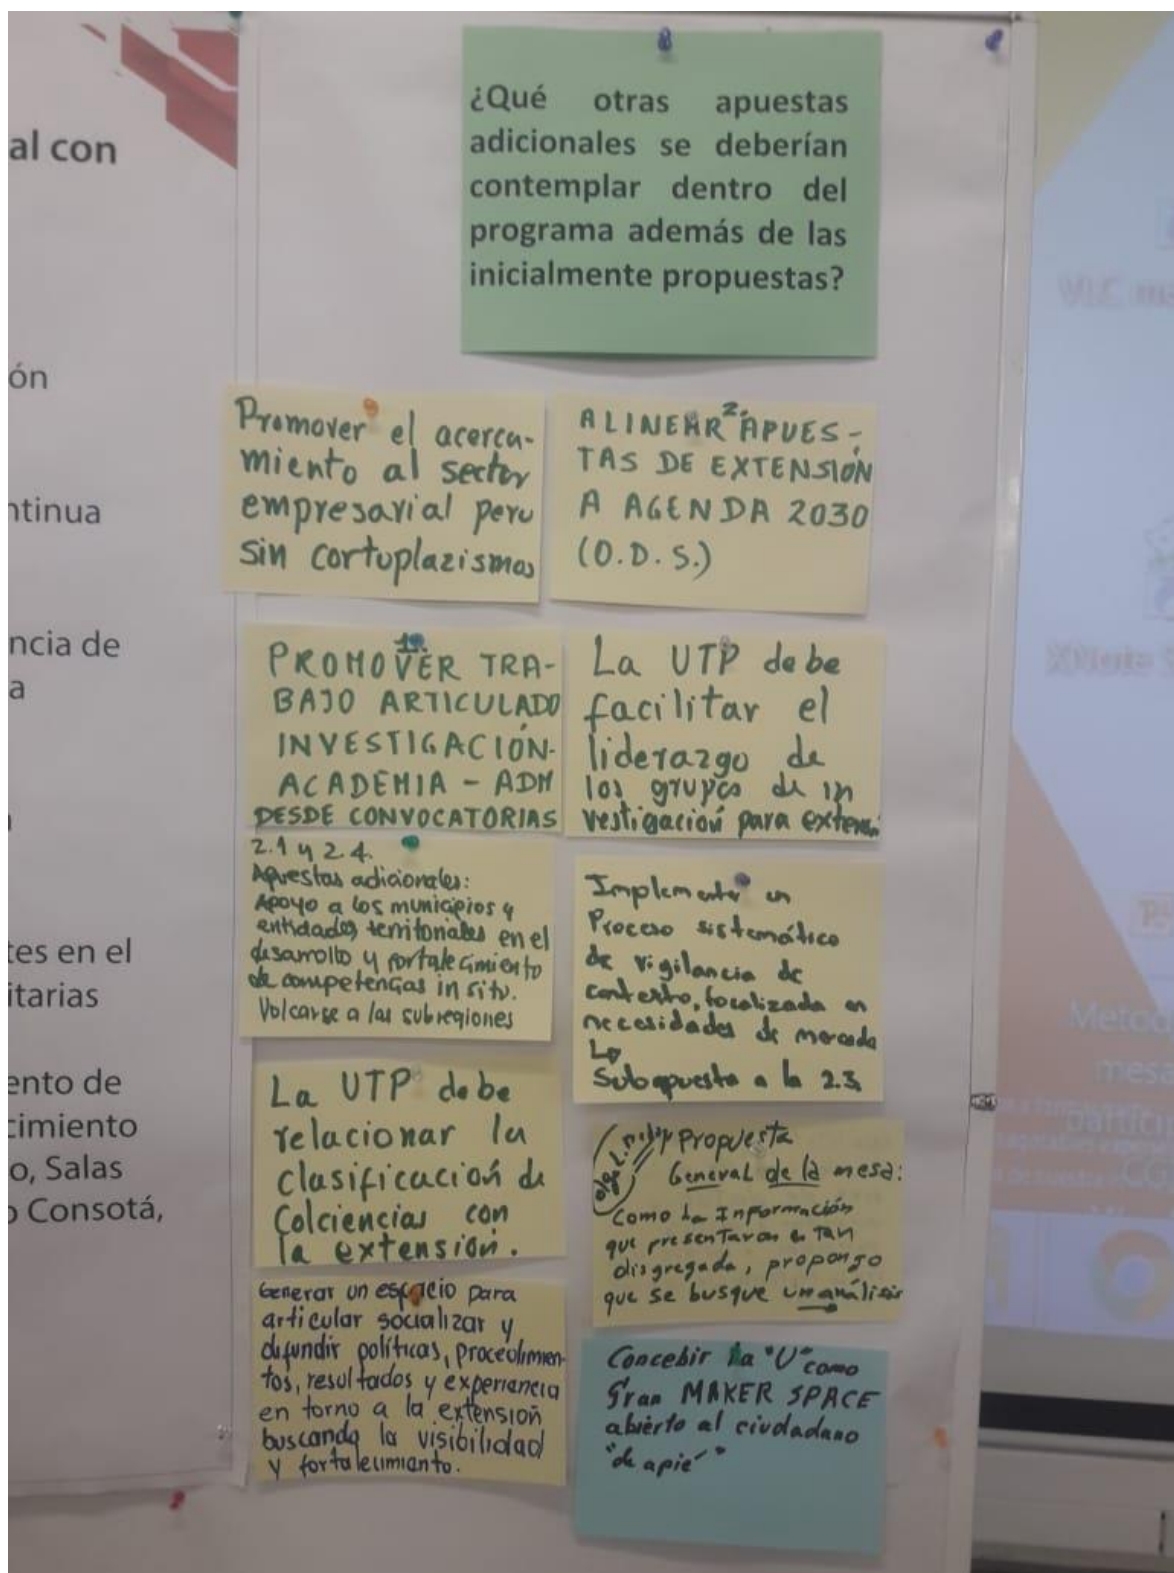 al con
ón
ntinua
ncia de
a
tes en el
itarias
ento de
cimiento
o, Salas
o Consotá,
¿Qué otras apuestas
adicionales se deberían
contemplar dentro del
programa además de las
inicialmente propuestas?
Promover el acerca-
miento al sector
empresarial pero
sin cortoplazismos
2.
ALINEAR APUES-
TAS DE EXTENSIÓN
A AGENDA 2030
(O.D.S.)
PROMOVER TRA-
BAJO ARTICULADO
INVESTIGACIÓN-
ACADEMIA - ADM
DESDE CONVOCATORIAS
La UTP debe
facilitar el
liderazgo de
los grupos de in
vestigación para
2.1 y 2.4.
Apuestas adicionales:
Apoyo a los municipios y
entidades territoriales en el
desarrollo y fortalecimiento
de competencias in situ.
Volcarse a las subregiones
Implementar un
Proceso sistemático
de vigilancia de
contexto, focalizada en
necesidades de mercado
↳
Subapuesta a la 2.3.
La UTP debe
relacionar la
clasificación de
Colciencias con
la extensión.
Propuesta
General de la mesa:
Como la Información
que presentaron es tan
disgregada, propongo
que se busque un análisis
Generar un espacio para
articular socializar y
difundir políticas, procedimien-
tos, resultados y experiencia
en torno a la extensión
buscando la visibilidad
y fortalecimiento.
Concebir la "U" como
gran MAKER SPACE
abierto al ciudadano
"de apie"
VLC
XMate
Metod
mesa
partici